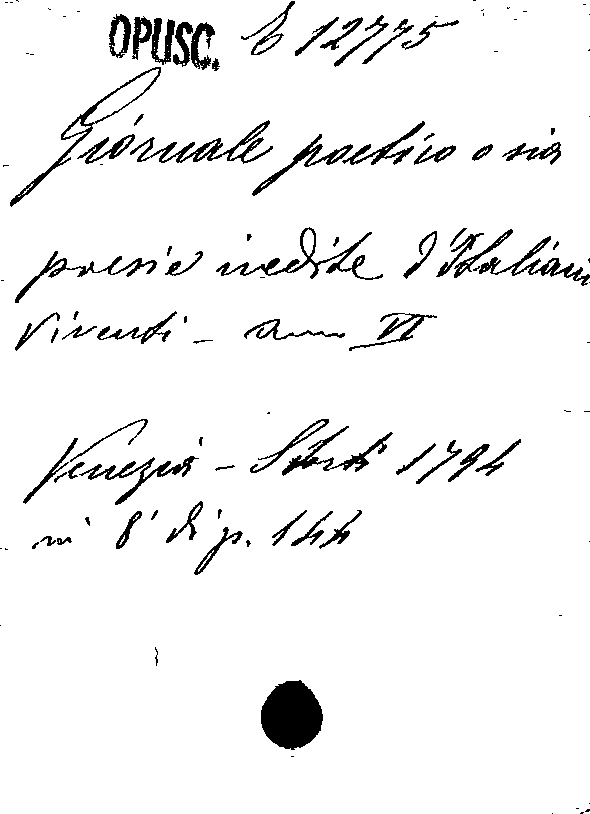 OPUSC. E 12775
Giornale poetico o sia
poesie inedite d'Italiani
viventi - anno VI
Venezia - Storti 1794
in 8° di p. 144